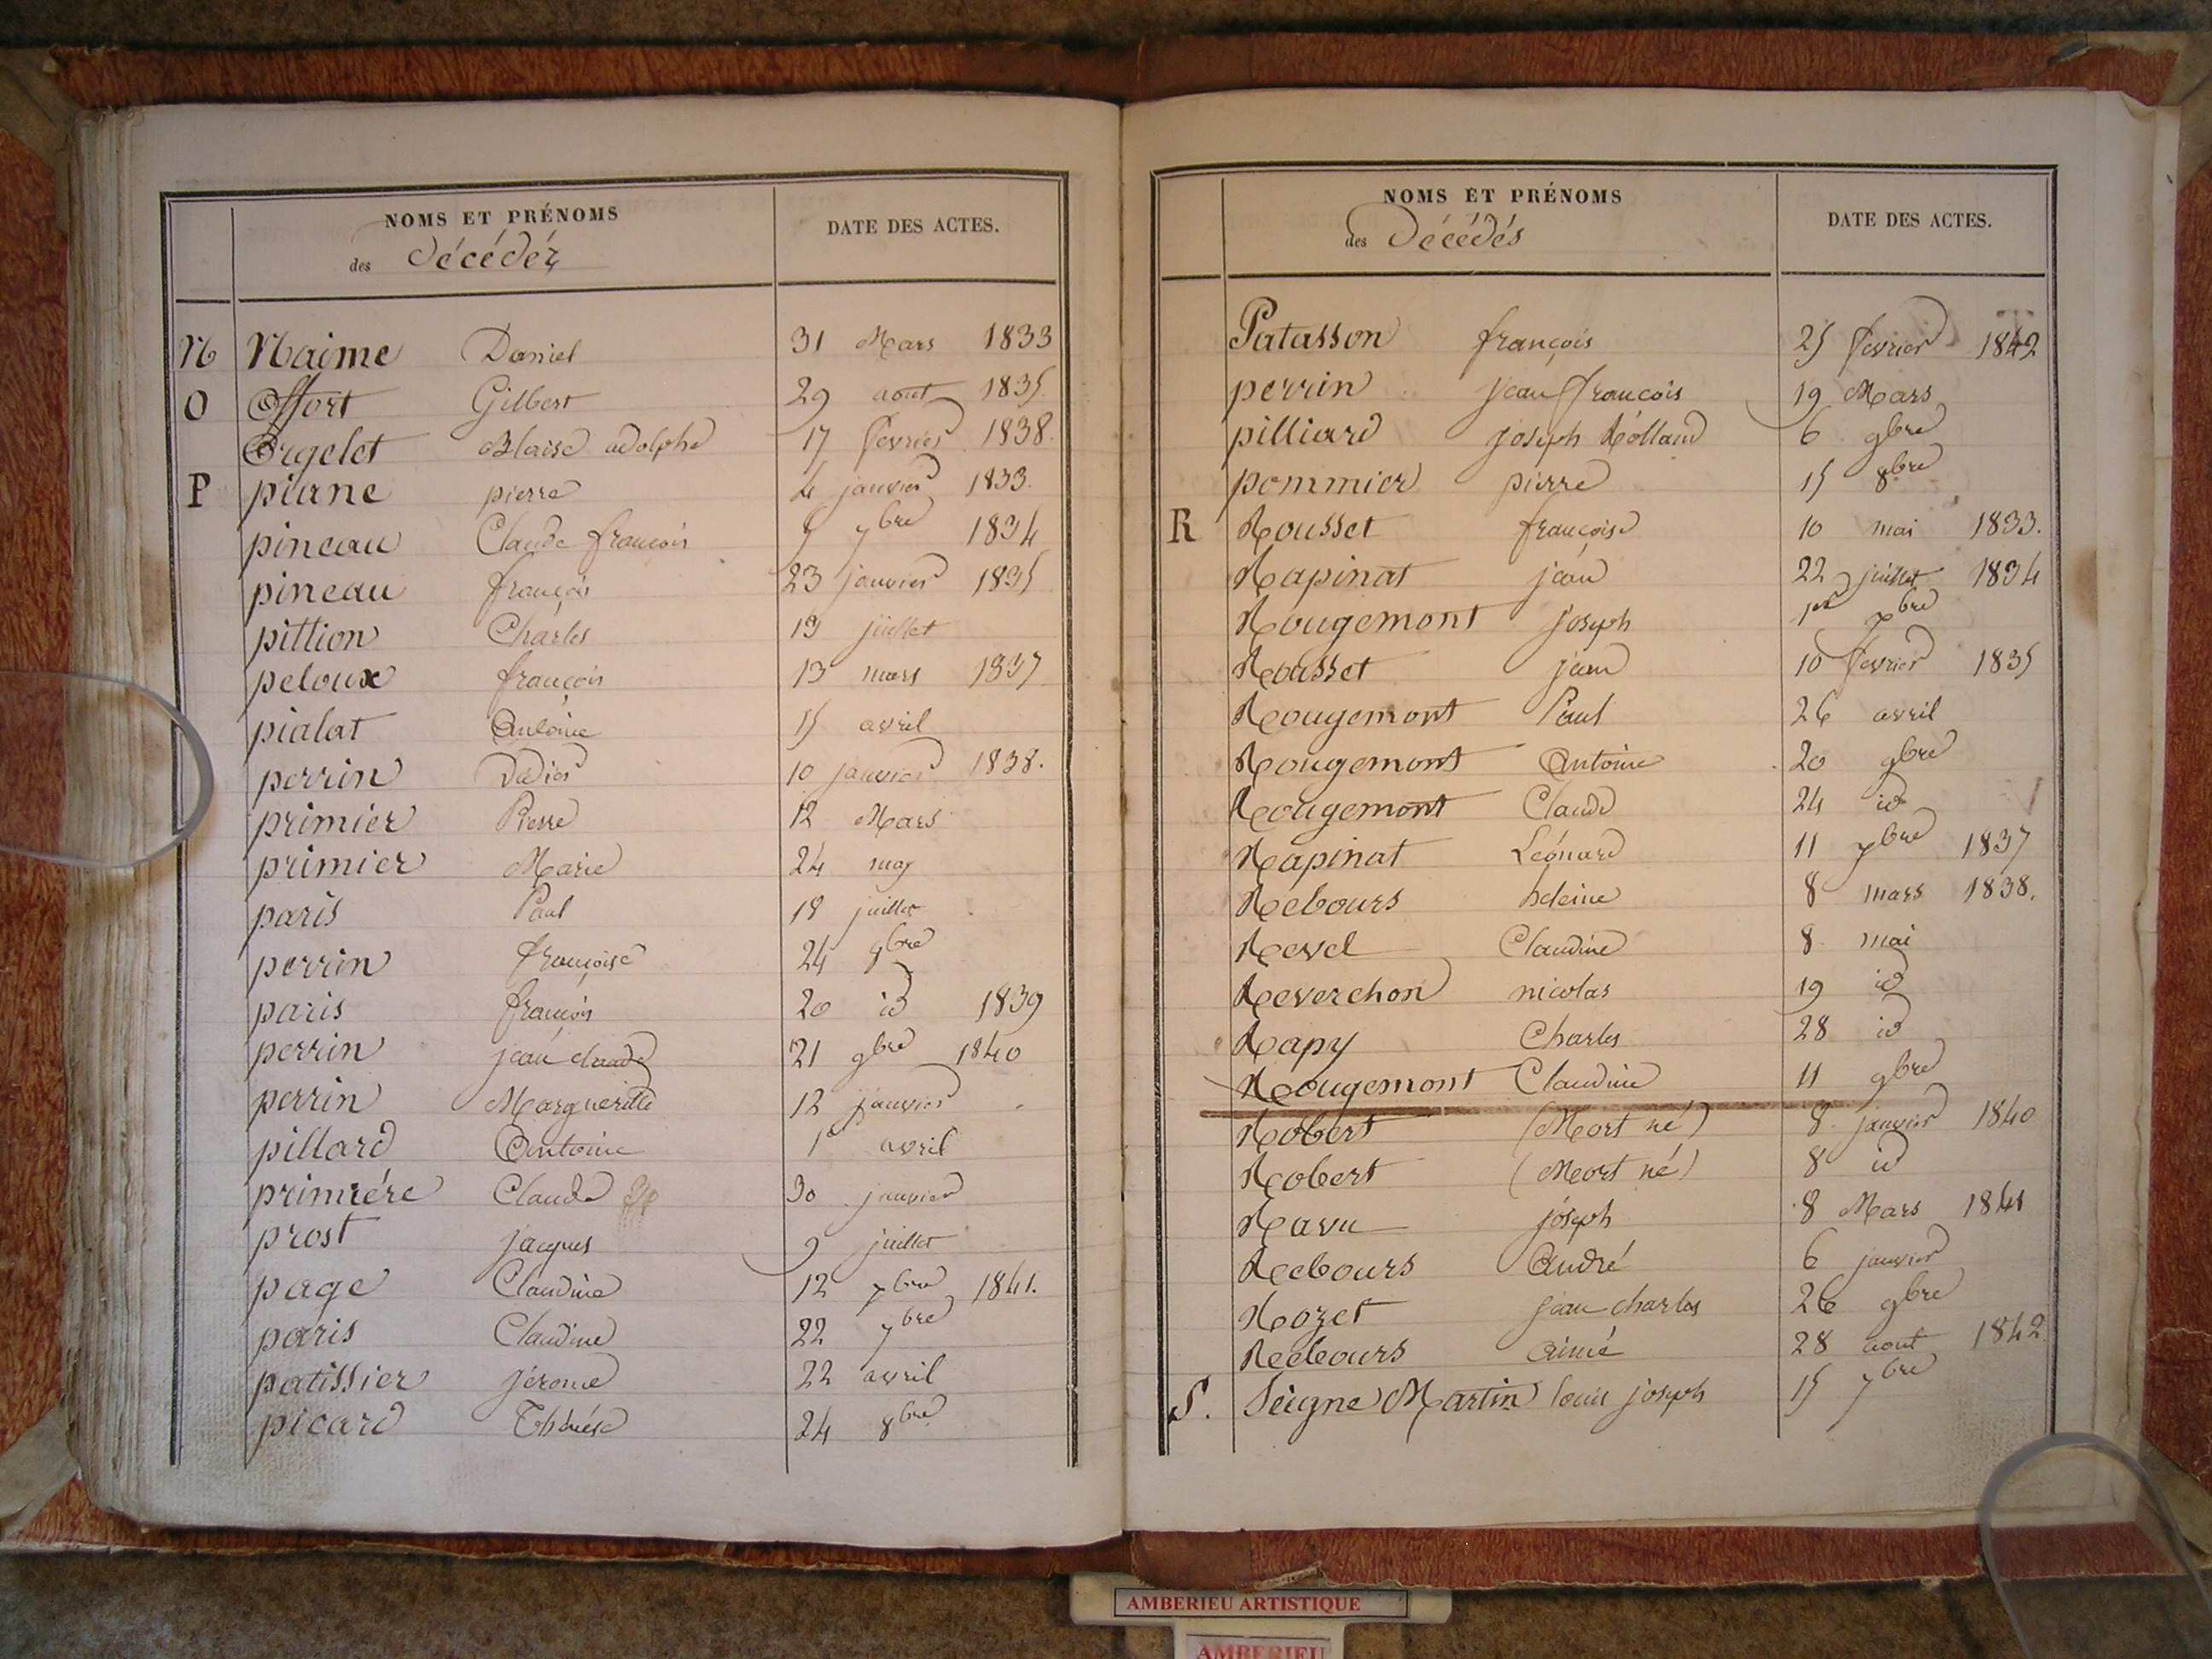 NOMS ET PRÉNOMS
des Décédéz
DATE DES ACTES.
N Naime Daniel 31 Mars 1833
O Offort Gilbert 29 aout 1835
Orgelet Blaise adolphe 17 fevrier 1838.
P piane pierre 4 janvier 1833.
pineau Claude françois 7bre 1834
pineau françois 23 janvier 1835
pittion Charles 19 juillet
peloux françois 13 mars 1837
pialat Antoine 15 avril
perrin Didier 10 janvier 1838.
primier Pierre 12 Mars
primier Marie 24 may
paris Paul 18 juillet
perrin françoise 24 9bre
paris françois 20 id 1839
perrin jean claude 21 9bre 1840
perrin Margueritte 12 janvier
pillard Antoine 1er avril
primiére Claude 30 janvier
prost jacques 9 juillet
page Claudine 12 7bre 1841.
paris Claudine 22 7bre
patissier jérome 22 avril
picard Thérése 24 8bre
NOMS ET PRÉNOMS
des Décédés
DATE DES ACTES.
Patasson françois 25 fevrier 1842
perrin jean françois 19 Mars
pilliard joseph Rolland 6 9bre
pommier pierre 15 8bre
R Rousset françoise 10 mai 1833.
Rapinat jean 22 juillet 1834
Rougemont joseph 1er 7bre
Rousset jean 10 fevrier 1835
Rougemont Paul 26 avril
Rougemont Antoine 20 9bre
Rougemont Claude 24 id
Rapinat Léonard 11 7bre 1837
Rebours heleine 8 mars 1838.
Revel Claudine 8 mai
Reverchon nicolas 19 id
Rapy Charles 28 id
Rougemont Claudine 11 9bre
Robert (Mort né) 8 janvier 1840
Robert (Mort né) 8 id
Ravu joseph 8 Mars 1841
Rebours André 6 janvier
Rozet jean charles 26 9bre
Rebours aimé 28 aout 1842
S. Seigne Martin louis joseph 15 7bre
AMBERIEU ARTISTIQUE
AMBERIEU